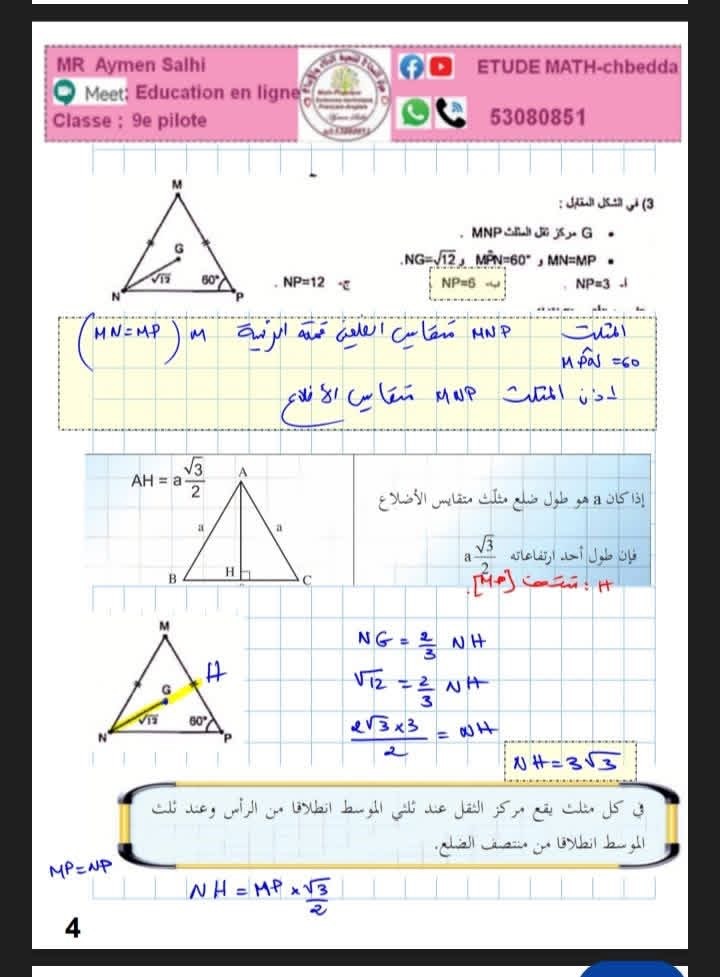 MR Aymen Salhi
Meet: Education en ligne
Classe : 9e pilote
ETUDE MATH-chbedda
53080851
3) في الشكل المقابل :
• G مركز ثقل المثلث MNP .
• MN=MP و MP̂N=60° و NG=√12.
أ- NP=3 .
ب- NP=6
ج- NP=12 .
M
G
√12
60°
N
P
المثلث MNP متقايس الضلعين قمته الرئيسية M (MN=MP)
MP̂N = 60
اذن المثلث MNP متقايس الأضلاع
AH = a √3/2
A
a
a
B
H
C
إذا كان a هو طول ضلع مثلّث متقايس الأضلاع
فإن طول أحد ارتفاعاته a √3/2
H : منتصف [MP].
M
H
G
√12
60°
N
P
NG = 2/3 NH
√12 = 2/3 NH
2√3 × 3 / 2 = NH
NH = 3√3
في كل مثلث يقع مركز الثقل عند ثلثي الموسط انطلاقا من الرأس وعند ثلث
الموسط انطلاقا من منتصف الضلع.
MP=NP
NH = MP × √3/2
4